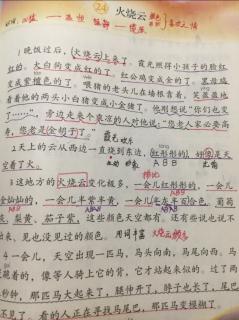 24 火烧云
1 晚饭过后，火烧云上来了。霞光照得小孩子的脸红
红的。大白狗变成红的了。红公鸡变成金的了。黑母鸡
变成紫檀色的了。喂猪的老头儿在墙根靠着，笑盈盈地
看着他的两头小白猪变成小金猪了。他刚想说：“你们也变
了……”，旁边走来个乘凉的人对他说：“您老人家必要高
寿，您老是金胡子了。”
2 天上的云从西边一直烧到东边，红彤彤的，好像是天
空着了火。
3 这地方的火烧云变化极多，一会儿红彤彤的，一会儿
金灿灿的，一会儿半紫半黄，一会儿半灰半百合色。葡萄
灰、梨黄、茄子紫，这些颜色天空都有。还有些说也说不
出来、见也没见过的颜色。 用词丰富
4 一会儿，天空出现一匹马，马头向南，马尾向西。马
是跪着的，像等人骑上它的背，它才站起来似的。过了两
三秒钟，那匹马大起来了，腿伸开了，脖子也长了，尾巴
不见了。看的人正在寻找马尾巴，那匹马变模糊了。